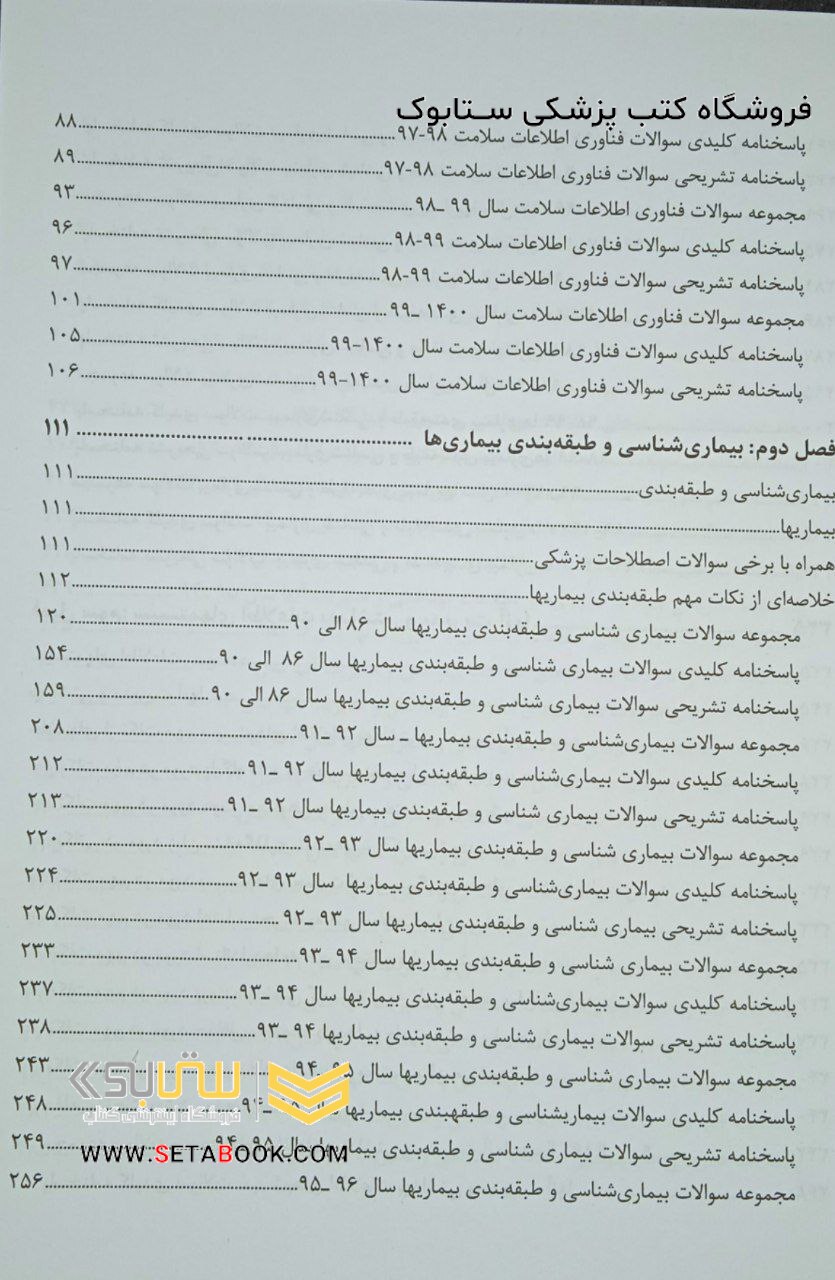 فروشگاه کتب پزشکی ستابوک
پاسخنامه کلیدی سوالات فناوری اطلاعات سلامت ۹۸-۹۷............۸۸
پاسخنامه تشریحی سوالات فناوری اطلاعات سلامت ۹۸-۹۷............۸۹
مجموعه سوالات فناوری اطلاعات سلامت سال ۹۹ ـ۹۸............۹۳
پاسخنامه کلیدی سوالات فناوری اطلاعات سلامت ۹۹-۹۸............۹۶
پاسخنامه تشریحی سوالات فناوری اطلاعات سلامت ۹۹-۹۸............۹۷
مجموعه سوالات فناوری اطلاعات سلامت سال ۱۴۰۰ ـ۹۹............۱۰۱
پاسخنامه کلیدی سوالات فناوری اطلاعات سلامت سال ۱۴۰۰-۹۹............۱۰۵
پاسخنامه تشریحی سوالات فناوری اطلاعات سلامت سال ۱۴۰۰-۹۹............۱۰۶
فصل دوم: بیماری‌شناسی و طبقه‌بندی بیماری‌ها ............ ۱۱۱
بیماری‌شناسی و طبقه‌بندی............۱۱۱
بیماریها............۱۱۱
همراه با برخی سوالات اصطلاحات پزشکی............۱۱۱
خلاصه‌ای از نکات مهم طبقه‌بندی بیماریها............۱۱۲
مجموعه سوالات بیماری شناسی و طبقه‌بندی بیماریها سال ۸۶ الی ۹۰............۱۲۰
پاسخنامه کلیدی سوالات بیماری شناسی و طبقه‌بندی بیماریها سال ۸۶ الی ۹۰............۱۵۴
پاسخنامه تشریحی سوالات بیماری شناسی و طبقه‌بندی بیماریها سال ۸۶ الی ۹۰............۱۵۹
مجموعه سوالات بیماری‌شناسی و طبقه‌بندی بیماریها ـ سال ۹۲ ـ۹۱............۲۰۸
پاسخنامه کلیدی سوالات بیماری‌شناسی و طبقه‌بندی بیماریها سال ۹۲ ـ۹۱............۲۱۲
پاسخنامه تشریحی سوالات بیماری شناسی و طبقه‌بندی بیماریها سال ۹۲ ـ۹۱............۲۱۳
مجموعه سوالات بیماری شناسی و طبقه‌بندی بیماریها سال ۹۳ ـ۹۲............۲۲۰
پاسخنامه کلیدی سوالات بیماری‌شناسی و طبقه‌بندی بیماریها سال ۹۳ ـ۹۲............۲۲۴
پاسخنامه تشریحی بیماری شناسی و طبقه‌بندی بیماریها سال ۹۳ ـ۹۲............۲۲۵
مجموعه سوالات بیماری شناسی و طبقه‌بندی بیماریها سال ۹۴ ـ۹۳............۲۳۳
پاسخنامه کلیدی سوالات بیماری‌شناسی و طبقه‌بندی بیماریها سال ۹۴ ـ۹۳............۲۳۷
پاسخنامه تشریحی سوالات بیماری شناسی و طبقه‌بندی بیماریها ۹۴ ـ۹۳............۲۳۸
مجموعه سوالات بیماری شناسی و طبقه‌بندی بیماریها سال ۹۵ ـ۹۴............۲۴۳
پاسخنامه کلیدی سوالات بیماریشناسی و طبقهبندی بیماریها سال ۹۵ ـ۹۴............۲۴۸
پاسخنامه تشریحی سوالات بیماری شناسی و طبقه‌بندی بیماریها سال ۹۵ ـ۹۴............۲۴۹
مجموعه سوالات بیماری‌شناسی و طبقه‌بندی بیماریها سال ۹۶ ـ۹۵............۲۵۶
ستابوک
فروشگاه اینترنتی کتاب
WWW.SETABOOK.COM